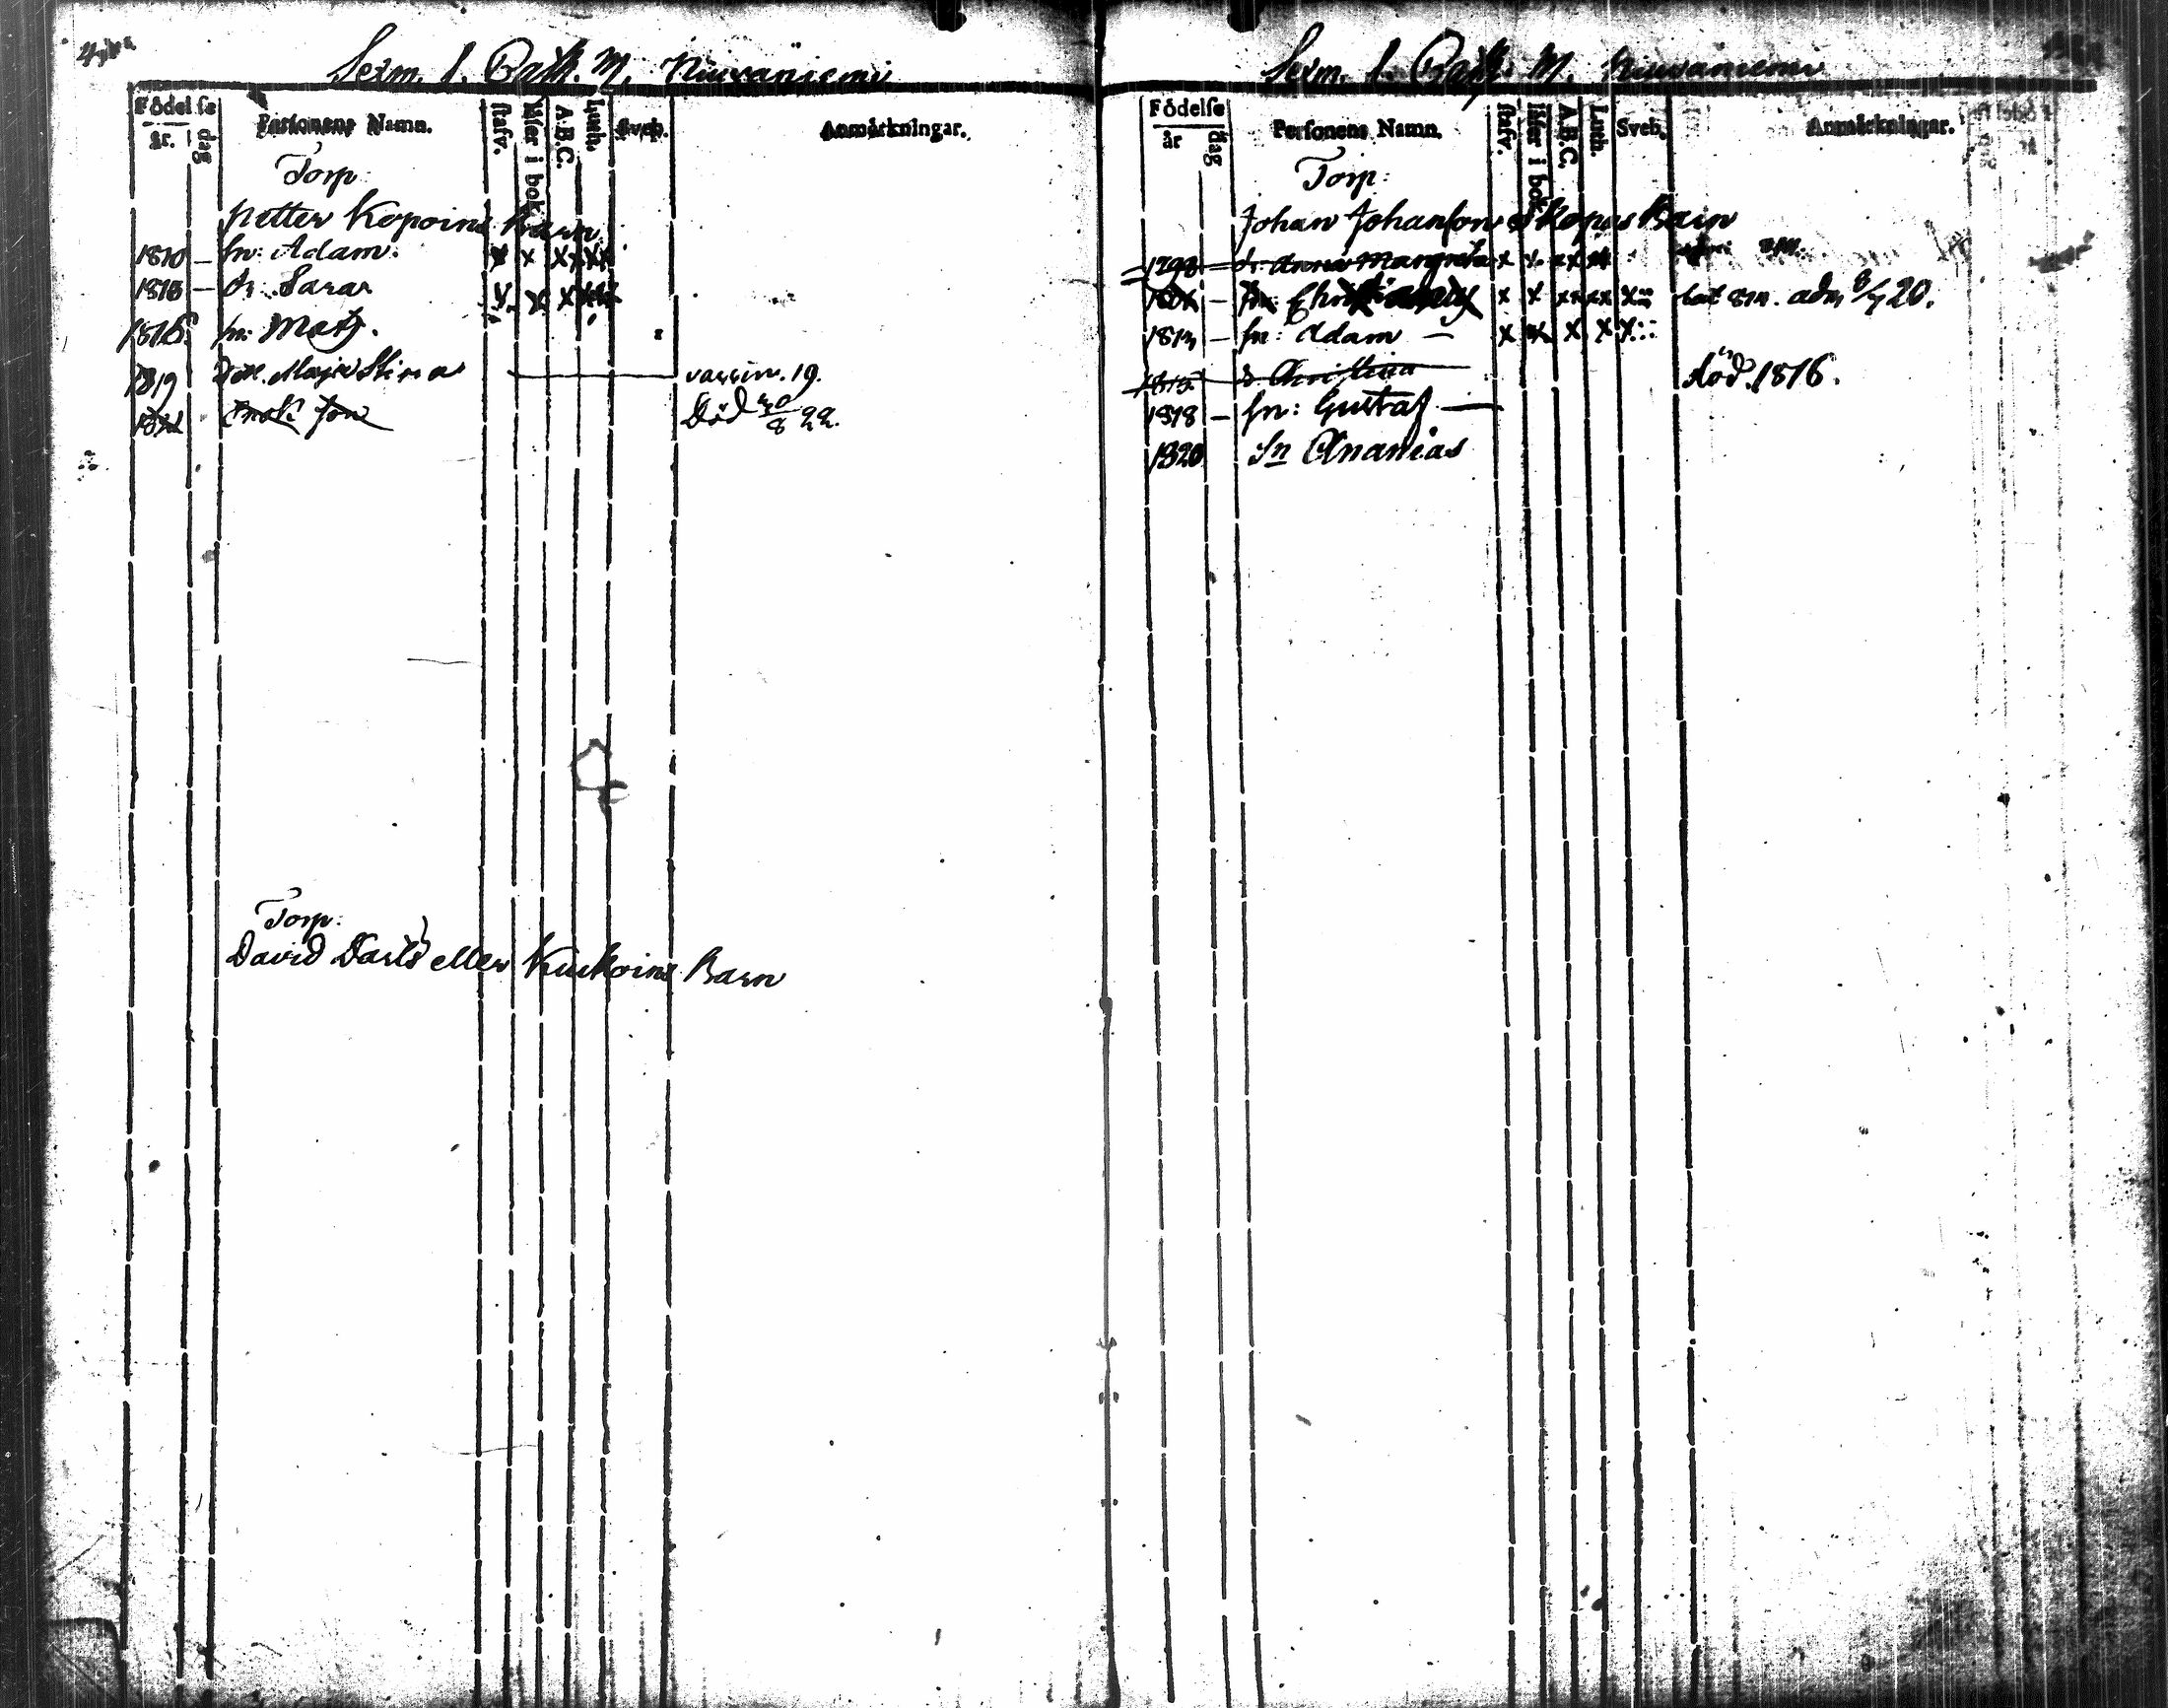 Sexm. 1. Rath. M. Niuvaniemi
Födelse
år. dag
Personens Namn.
stafv.
läser i bok
A.B.C.
Luth.
Sveb.
Anmärkningar.
Torp:
Petter Kopoins Barn
1810 — sn: Adam. x x x x x x
1815 — dr. Sara
1816. sn: Mats.
1819 Dott. Maja Stina vaccin. 19.
Död 30/8 22.
Torp:
David Davids eller Kuckoins Barn
Sexm. 1. Rath. M. Niuvaniemi
Födelse
år dag
Personens Namn.
stafv.
läser i bok
A.B.C.
Luth.
Sveb.
Anmärkningar.
Torp:
Johan Johansson Kopos Barn
1798 — d: Anna Margreta x x x x
adm 8/7 20.
1813 — sn: Adam — x x x x x
1815 d. Christina död. 1816.
1818 — sn: Gustaf —
1820 Sn Ananias